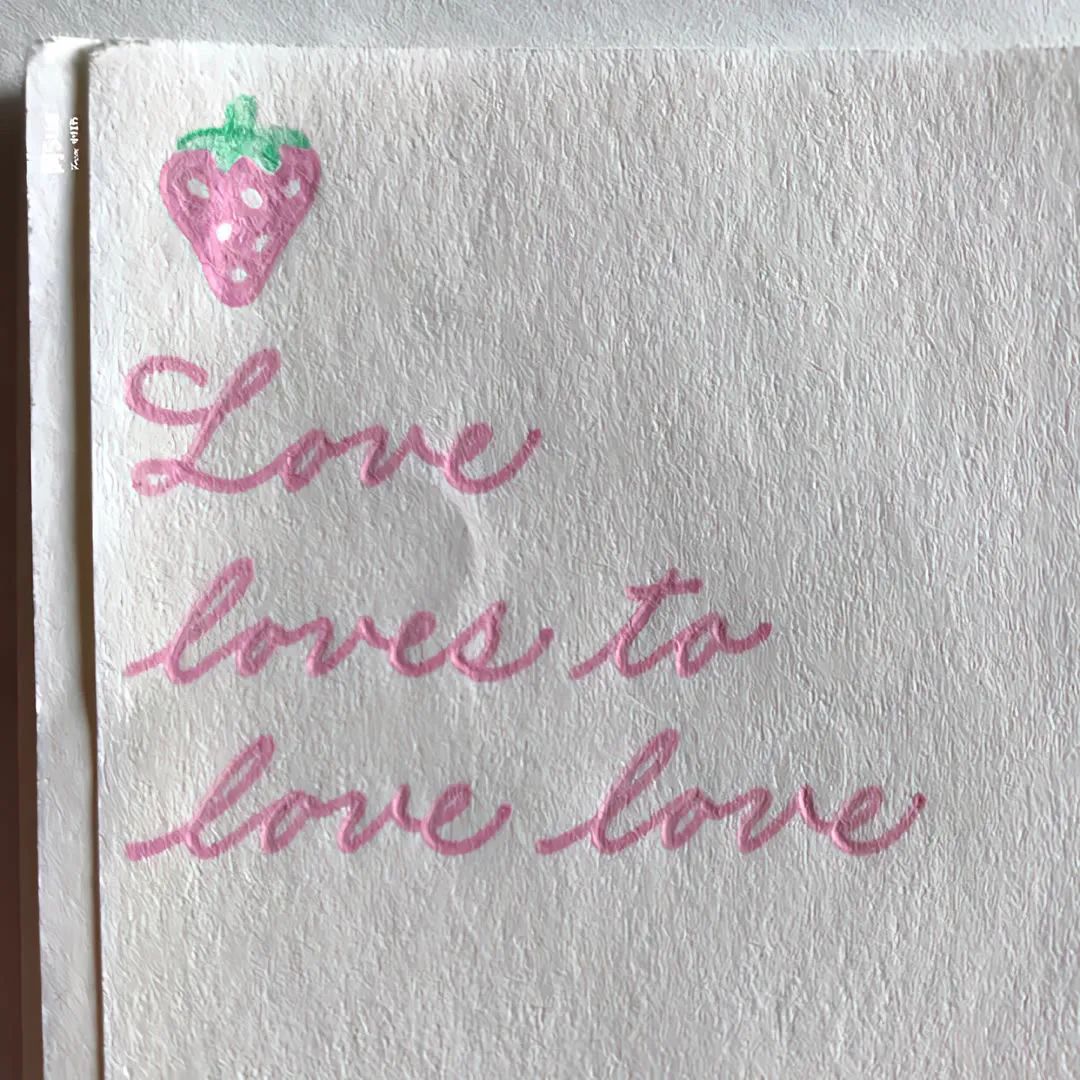 Love
loves to
love love